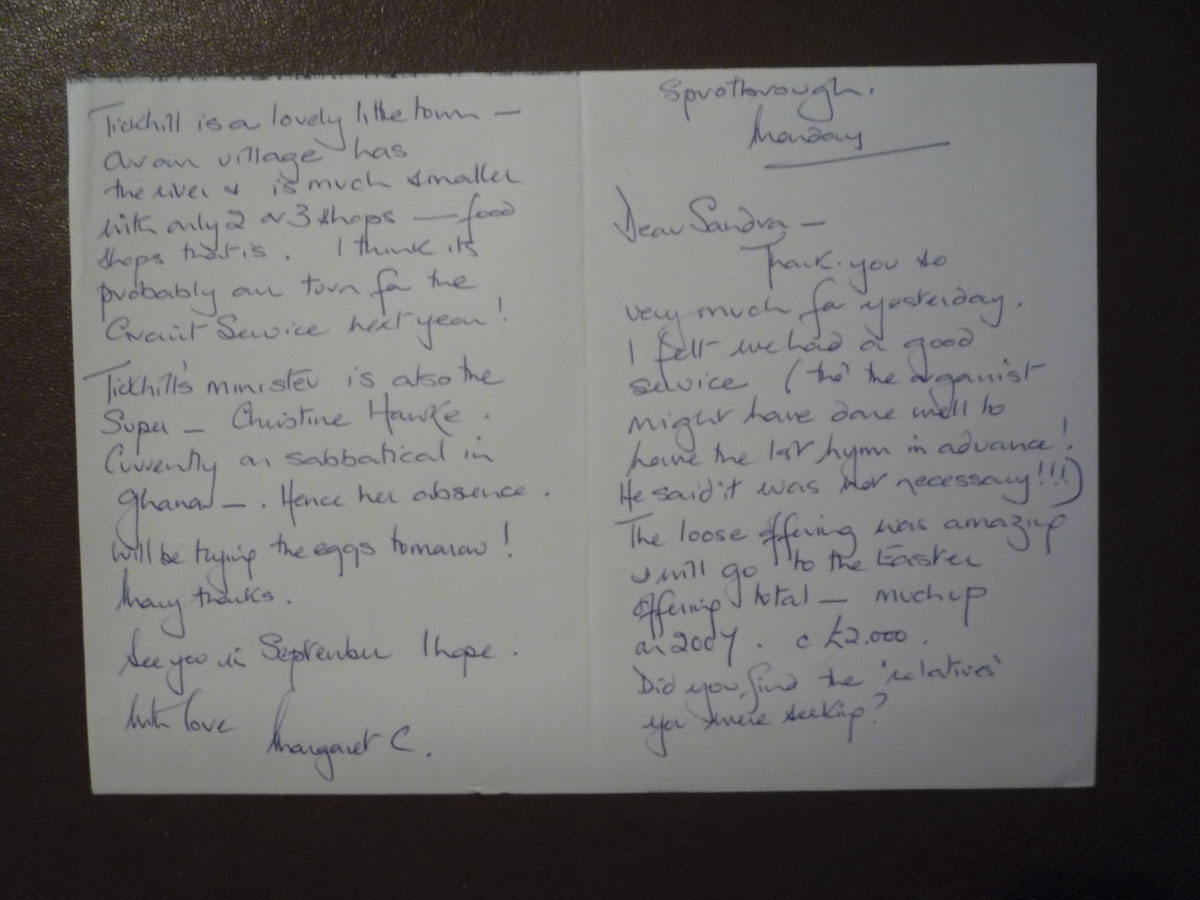 Sprotbrough.
Monday
Dear Sandra —
Thank you so
very much for yesterday.
I felt we had a good
service (tho' the organist
might have done well to
have the last hymn in advance!
He said it was not necessary!!!)
The loose offering was amazing
& will go to the Easter
offering total — much up
on 2007. c £2.000.
Did you find the 'relatives'
you were seeking?
Tickhill is a lovely little town —
our village has
the river & is much smaller
with only 2 or 3 shops — food
shops that is. I think its
probably our turn for the
Circuit Service next year!
Tickhill's minister is also the
Super — Christine Hawke.
Currently on sabbatical in
Ghana —. Hence her absence.
Will be trying the eggs tomorrow!
Many thanks.
See you in September I hope.
With love
Margaret C.